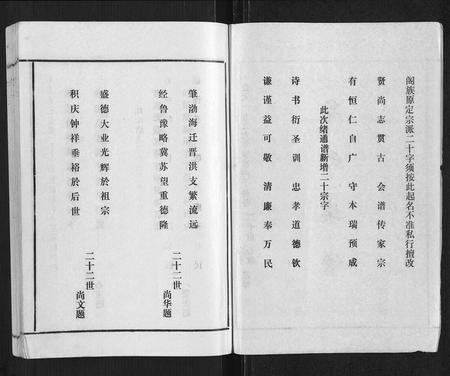 阁族原定宗派二十字须按此起名不准私行擅改
贤尚志贯古 会谱传家宗
有恒仁自广 守本瑞预成
此次绪通谱新增二十宗字
诗书衍圣训 忠孝道德钦
谦谨益可敬 清廉奉万民
肇渤海迁晋洪支繁流远
经鲁豫略冀苏望重德隆
二十二世 尚华题
盛德大业光辉於祖宗
积庆钟祥垂裕於后世
二十二世 尚文题